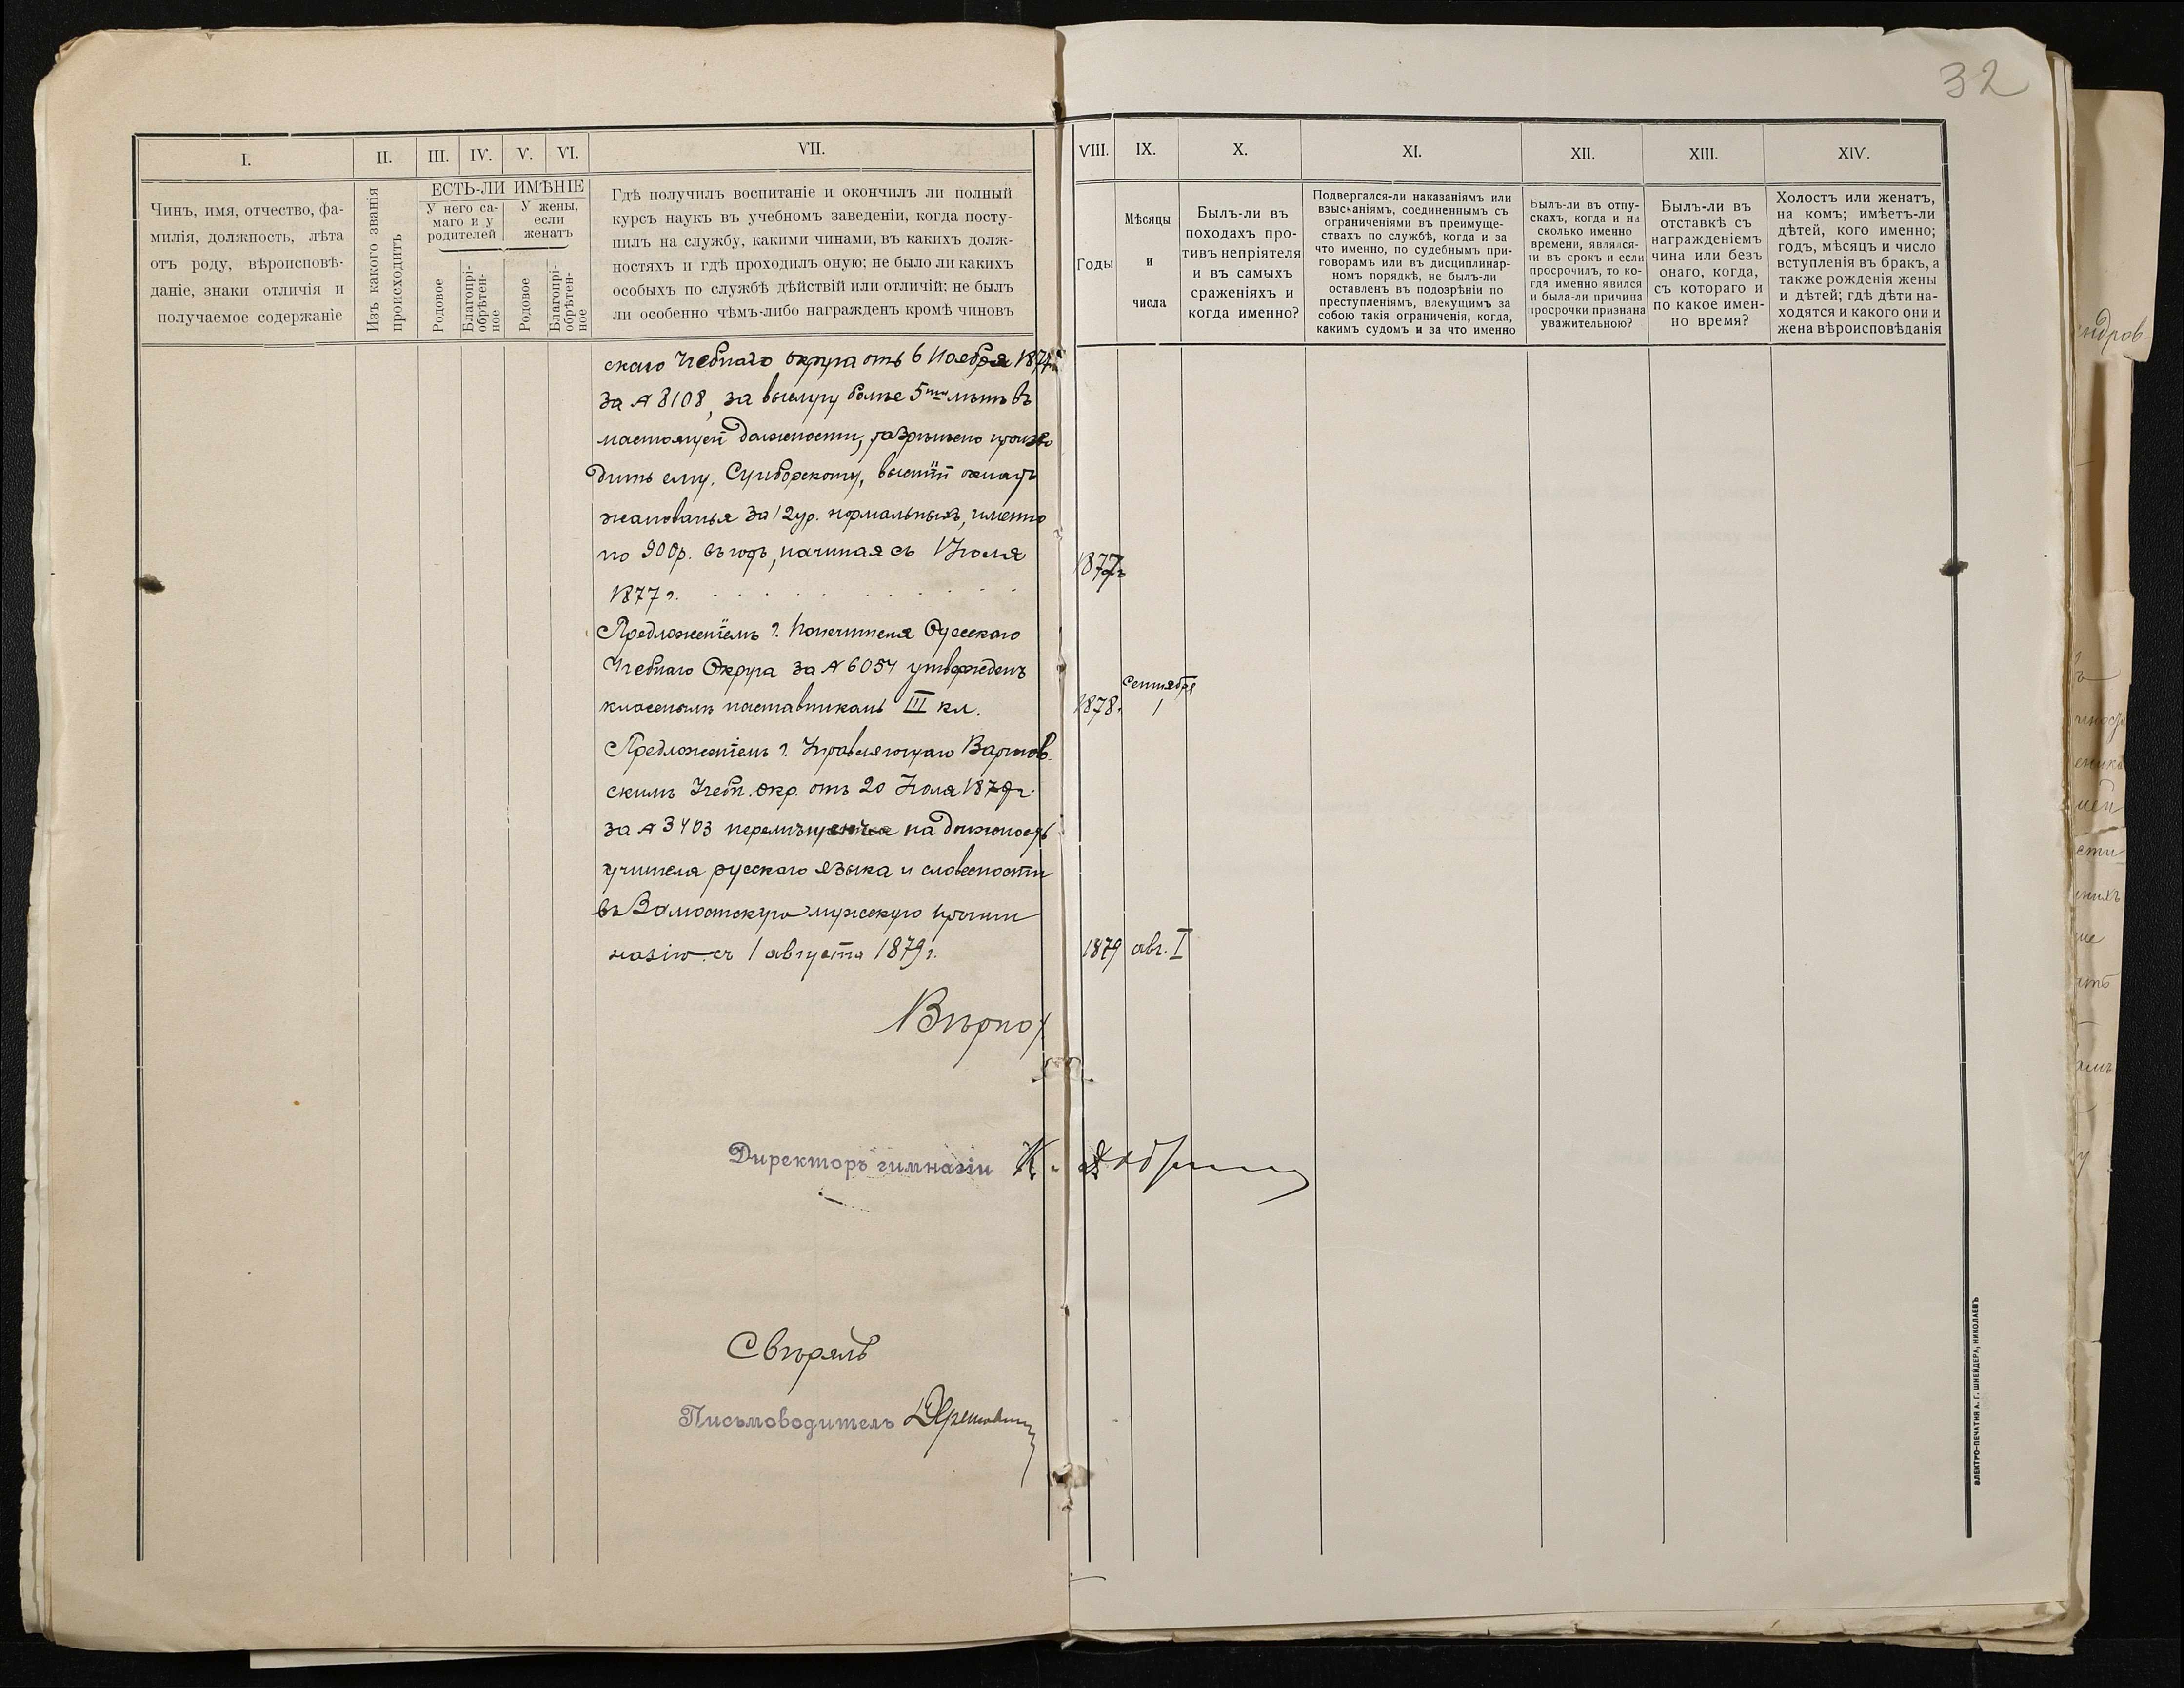 32
I.
II.
III.
IV.
V.
VI.
VII.
VIII.
IX.
X.
XI.
XII.
XIII.
XIV.
Чинъ, имя, отчество, фа-
милія, должность, лѣта
отъ роду, вѣроисповѣ-
даніе, знаки отличія и
получаемое содержаніе
Изъ какого званія
происходитъ
ЕСТЬ-ЛИ ИМѢНІЕ
У него са-
маго и у
родителей
У жены,
если
женатъ
Родовое
Благопрі-
обрѣтен-
ное
Родовое
Благопрі-
обрѣтен-
ное
Гдѣ получилъ воспитаніе и окончилъ ли полный
курсъ наукъ въ учебномъ заведеніи, когда посту-
пилъ на службу, какими чинами, въ какихъ долж-
ностяхъ и гдѣ проходилъ оную; не было ли какихъ
особыхъ по службѣ дѣйствій или отличій; не былъ
ли особенно чѣмъ-либо награжденъ кромѣ чиновъ
Годы
Мѣсяцы
и
числа
Былъ-ли въ
походахъ про-
тивъ непріятеля
и въ самыхъ
сраженіяхъ и
когда именно?
Подвергался-ли наказаніямъ или
взысканіямъ, соединеннымъ съ
ограниченіями въ преимуще-
ствахъ по службѣ, когда и за
что именно, по судебнымъ при-
говорамъ или въ дисциплинар-
номъ порядкѣ, не былъ-ли
оставленъ въ подозрѣніи по
преступленіямъ, влекущимъ за
собою такія ограниченія, когда,
какимъ судомъ и за что именно
Былъ-ли въ отпу-
скахъ, когда и на
сколько именно
времени, являлся-
ли въ срокъ и если
просрочилъ, то ко-
гда именно явился
и была-ли причина
просрочки признана
уважительною?
Былъ-ли въ
отставкѣ съ
награжденіемъ
чина или безъ
онаго, когда,
съ котораго и
по какое имен-
но время?
Холостъ или женатъ,
на комъ; имѣетъ-ли
дѣтей, кого именно;
годъ, мѣсяцъ и число
вступленія въ бракъ, а
также рожденія жены
и дѣтей; гдѣ дѣти на-
ходятся и какого они и
жена вѣроисповѣданія
скаго Учебнаго округа отъ 6 Ноября
за № 8108, за выслугу болѣе 5ти лѣтъ въ
настоящей должности, разрѣшено произво
дить ему, высшій окладъ
жалованья за 12 ур. нормальныхъ, именно
по 900 р. въ годъ, начиная съ 1 Іюля
1877 г.
1877
Предложеніемъ г. Попечителя Одесскаго
Учебнаго Округа за № 6054 утвержденъ
класснымъ наставникомъ III кл.
1878. Сентября 1
Предложеніемъ г. Управляющаго Варшав-
скимъ Учебн. окр. отъ 20 Іюля 1879 г.
за № 3403 перемѣщенъ на должность
учителя русскаго языка и словесности
въ Замостскую мужскую прогим
назію съ 1 августа 1879 г.
1879 авг. I
Вѣрно:
Директоръ гимназіи
Свѣрялъ
Письмоводитель
ЭЛЕКТРО-ПЕЧАТНЯ А. Г. ШНЕЙДЕРА, НИКОЛАЕВЪ